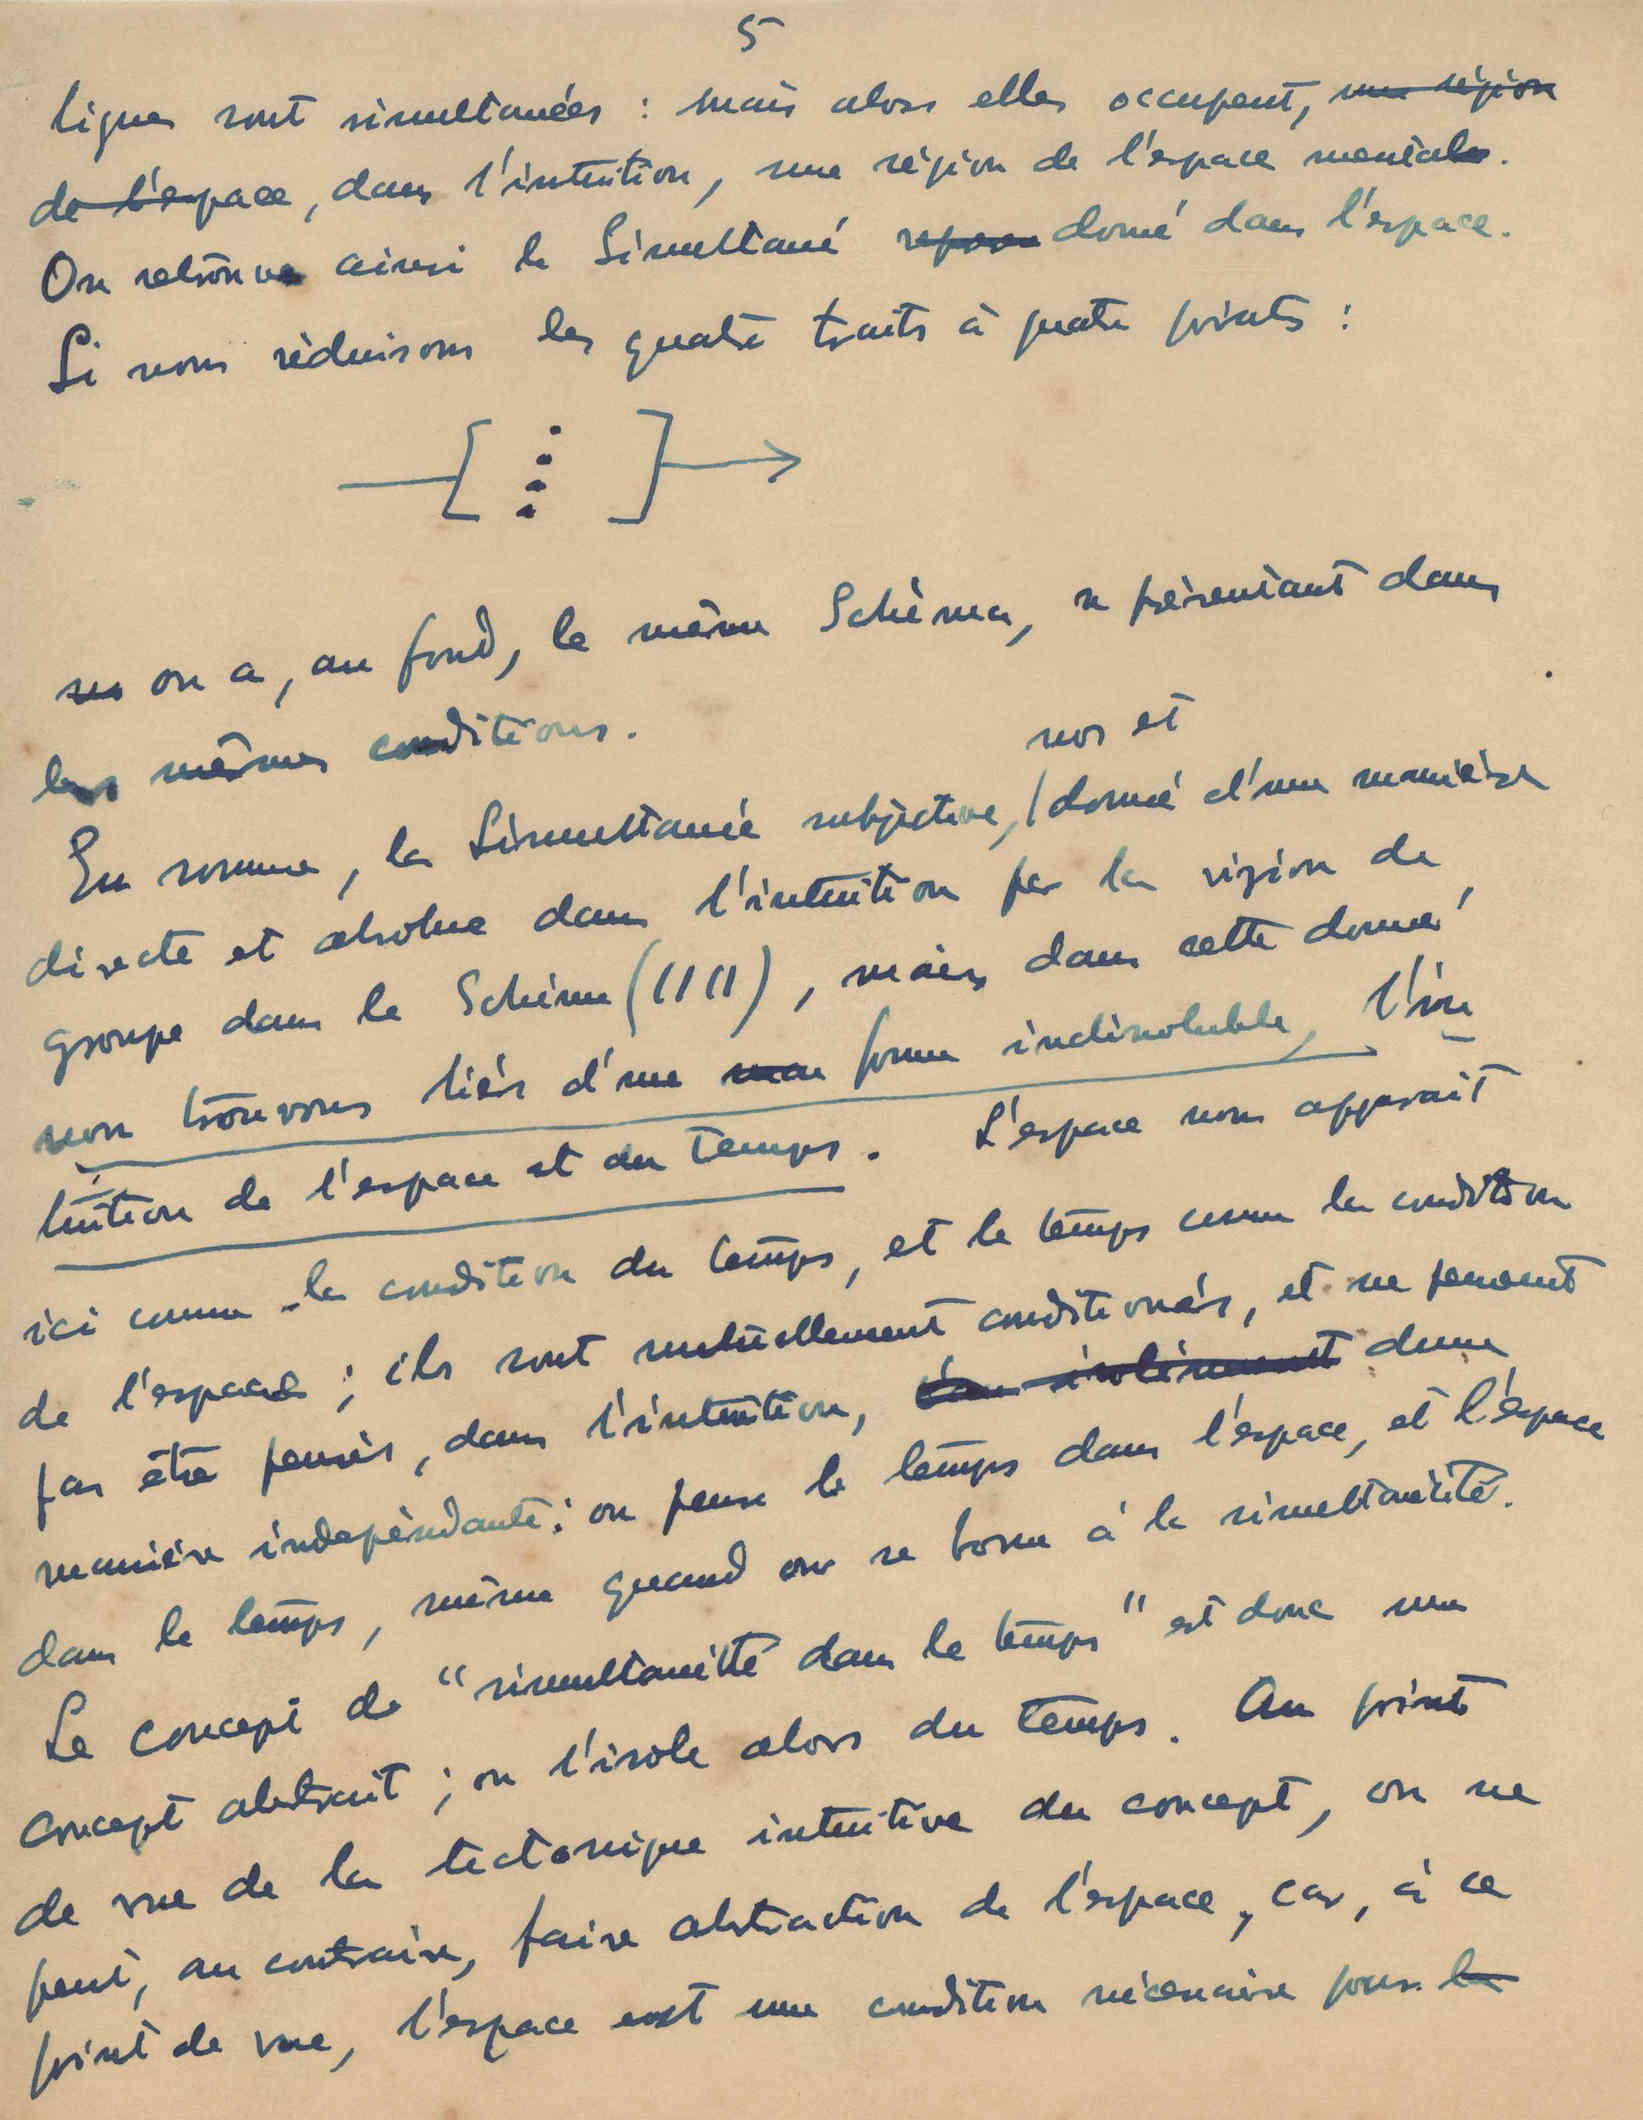 5
lignes sont simultanées : mais alors elles occupent, une région
de l'espace, dans l'intuition, une région de l'espace mentale.
On retrouve ainsi le Simultané donné dans l'espace.
Si nous réduisons les quatre traits à quatre points :
on a, au fond, le même Schéma, se présentant dans
les mêmes conditions.
nos et
En somme, la Simultanée subjective, donné d'une manière
directe et absolue dans l'intuition par la vision de
groupe dans le Schéma (IIII), mais dans cette donné,
nou trouvons liés d'une forme indissoluble, l'in
tuition de l'espace et du temps. L'espace nous apparait
ici comme la condition du temps, et le temps comme la condition
de l'espace ; ils sont mutuellement conditionnés, et ne peuvent
pas être pensés, dans l'intuition, isolément d'une
manière indépendante : on pense le temps dans l'espace, et l'éspace
dans le temps, même quand on se borne à la simultanéité.
Le concept de "simultanéité dans le temps" est donc un
concept abstrait ; on l'isole alors du temps. Au point
de vue de la tectonique intuitive du concept, on ne
peut, au contraire, faire abstraction de l'espace, car, à ce
point de vue, l'espace est une condition nécessaire pour la